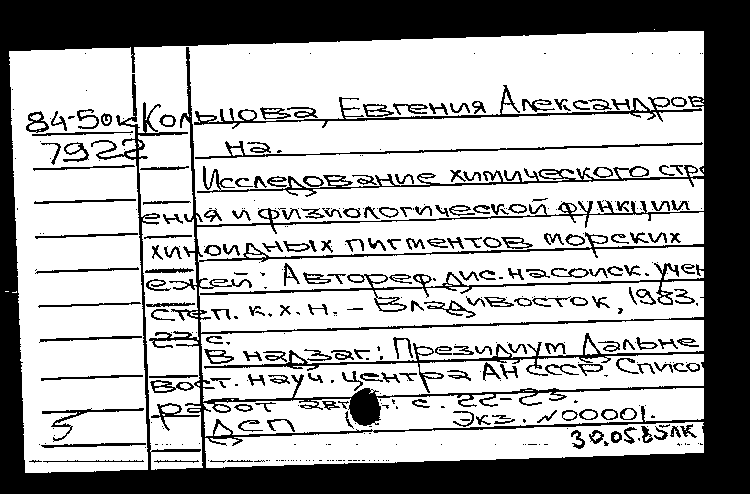 84-5ок Кольцова, Евгения Александров
7922 на.
Исследование химического стро
ения и физиологической функции
хиноидных пигментов морских
ежей: Автореф. дис. на соиск. учен
степ. к.х.н. – Владивосток, 1983.-
23 с.
В надзаг.: Президиум Дальне
вост. науч. центра АН СССР. Список
работ авт.: с. 22-23.
5 ДСП Экз. №00001.
30.05.85ЛК